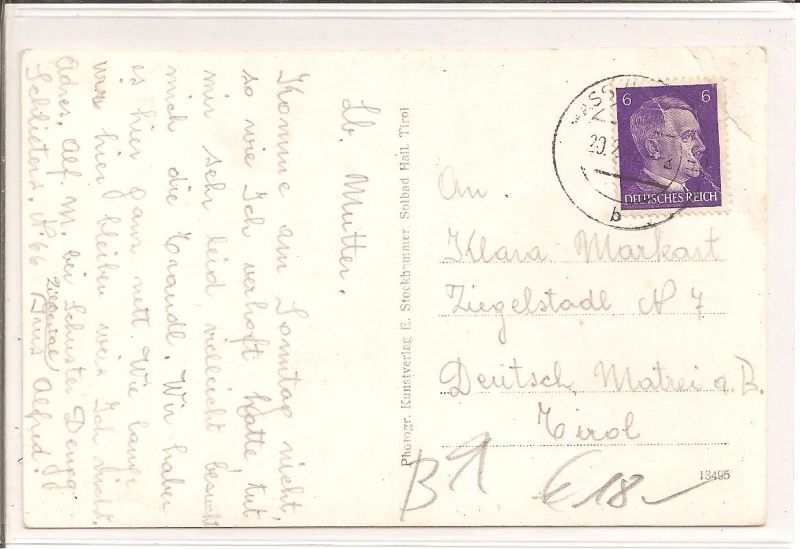 Lb. Mutter.
Komme am Sonntag nicht,
so wie Ich verhoft hatte, tut
mir sehr leid, vielleicht besucht
mich die Traudl. Wir haben
es hier ganz nett. Wie lange
wir hier bleiben weis Ich nicht.
Adres. Alf. M. bei Schuster Dengg
Schlitters. N 66
Zillertal
Grus Alfred!
Photogr. Kunstverlag E. Stockhammer Solbad Hall, Tirol
20.
b
6 6
DEUTSCHES REICH
An.
Klara Markart
Ziegelstadl N 7
Deutsch Matrei a. B.
Tirol
B 1
€ 18-
13495